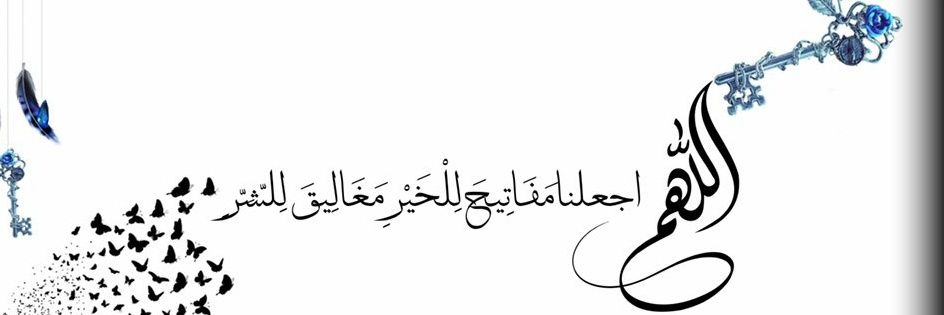 اللهم اجعلنا مَفَاتِيحَ لِلْخَيْرِ مَغَالِيقَ لِلشّرِّ